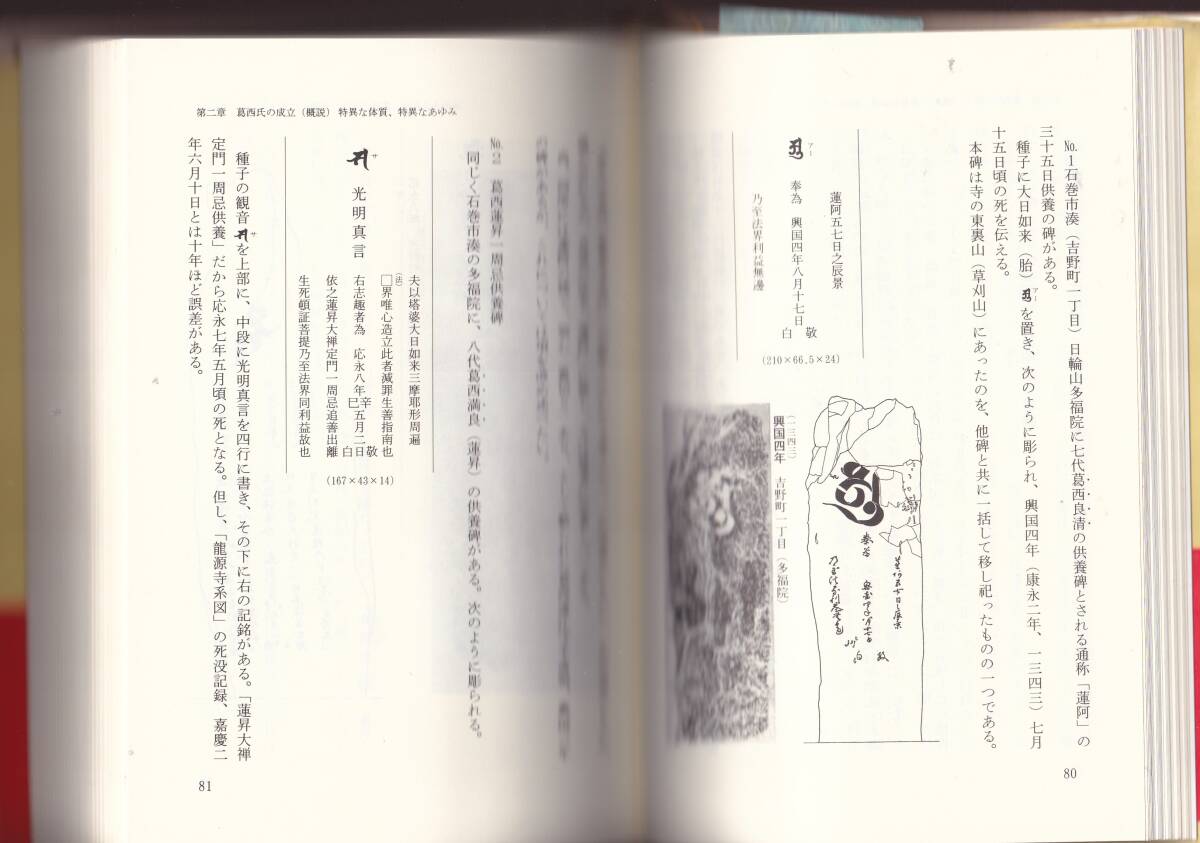 No.1石巻市湊（吉野町一丁目）日輪山多福院に七代葛西良清の供養碑とされる通称「蓮阿」の
三十五日供養の碑がある。
種子に大日如来（胎）アーを置き、次のように彫られ、興国四年（康永二年、一三四三）七月
十五日頃の死を伝える。
本碑は寺の東裏山（草刈山）にあったのを、他碑と共に一括して移し祀ったものの一つである。
蓮阿五七日之辰景
アー
奉為　興国四年八月十七日
敬
白
乃至法界利益無邊
(210×66.5×24)
（一三四三）
興国四年　吉野町一丁目（多福院）
80
第二章　葛西氏の成立（概説）特異な体質、特異なあゆみ
No.2　葛西蓮昇一周忌供養碑
同じく石巻市湊の多福院に、八代葛西満良（蓮昇）の供養碑がある。次のように彫られる。
サ
光明真言
夫以塔婆大日如来三摩耶形周遍
（法）
□界唯心造立此者滅罪生善指南也
右志趣者為　応永八年辛巳五月二日敬白
依之蓮昇大禅定門一周忌追善出離
生死頓証菩提乃至法界同利益故也
(167×43×14)
種子の観音サを上部に、中段に光明真言を四行に書き、その下に右の記銘がある。「蓮昇大禅
定門一周忌供養」だから応永七年五月頃の死となる。但し、「龍源寺系図」の死没記録、嘉慶二
年六月十日とは十年ほど誤差がある。
81